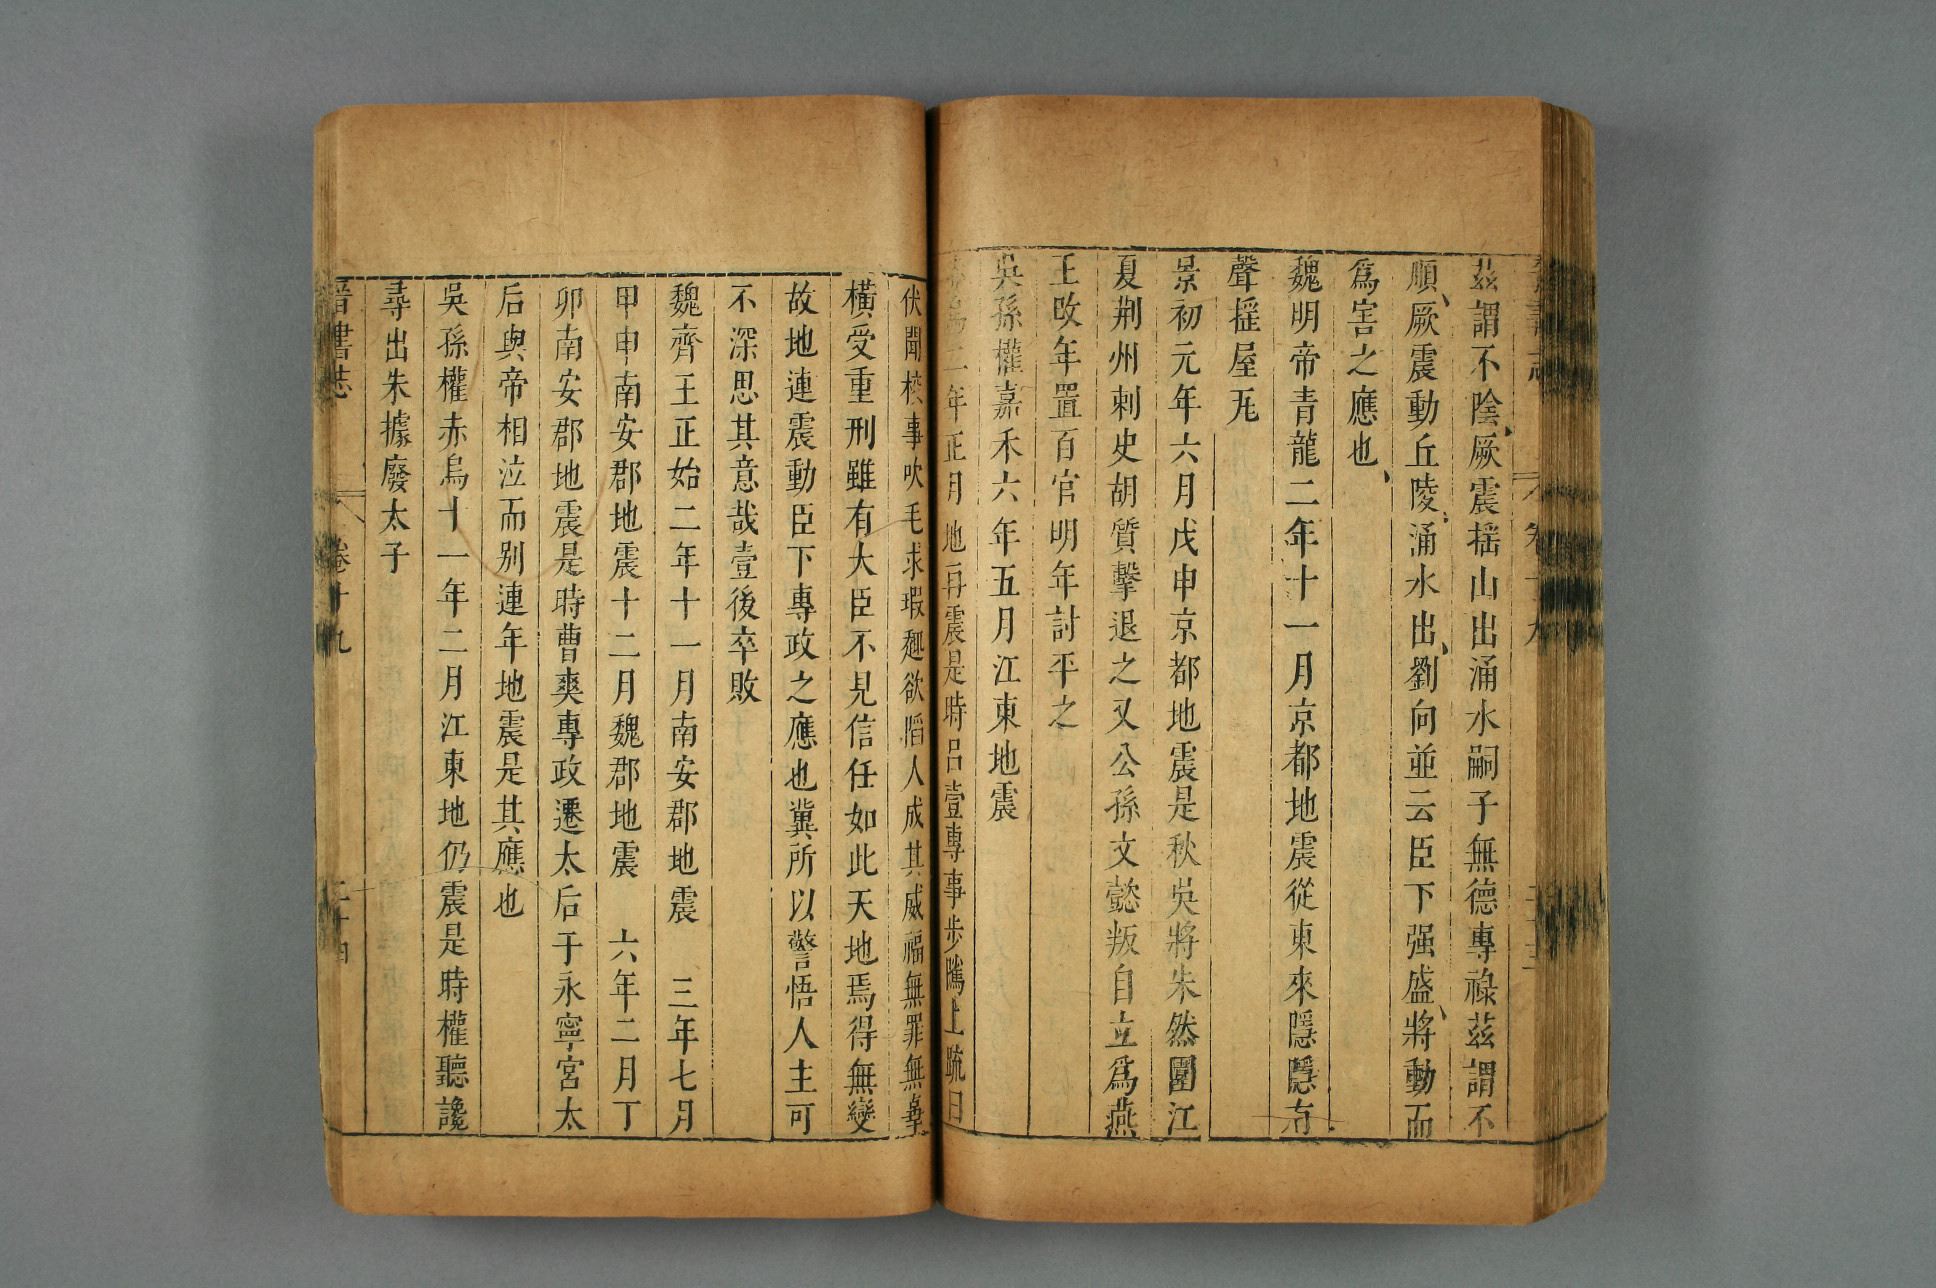 茲謂不陰厥震揺山出涌水嗣子無德專祿茲謂不
順厥震動丘陵涌水出劉向並云臣下强盛將動而
爲害之應也
魏明帝青龍二年十一月京都地震從東來隱隱有
聲揺屋瓦
景初元年六月戊申京都地震是秋吳將朱然圍江
夏荆州刺史胡質擊退之又公孫文懿叛自立爲燕
王改年置百官明年討平之
吳孫權嘉禾六年五月江東地震
赤烏二年正月地再震是時呂壹專事步騭上疏曰
伏聞校事吹毛求瑕趣欲䧟人成其威福無罪無辜
橫受重刑雖有大臣不見信任如此天地焉得無變
故地連震動臣下專政之應也冀所以警悟人主可
不深思其意哉壹後卒敗
魏齊王正始二年十一月南安郡地震 三年七月
甲申南安郡地震十二月魏郡地震 六年二月丁
卯南安郡地震是時曹爽專政遷太后于永寧宮太
后與帝相泣而别連年地震是其應也
吳孫權赤烏十一年二月江東地仍震是時權聽讒
尋出朱據廢太子
晉書志 卷十九 二十四